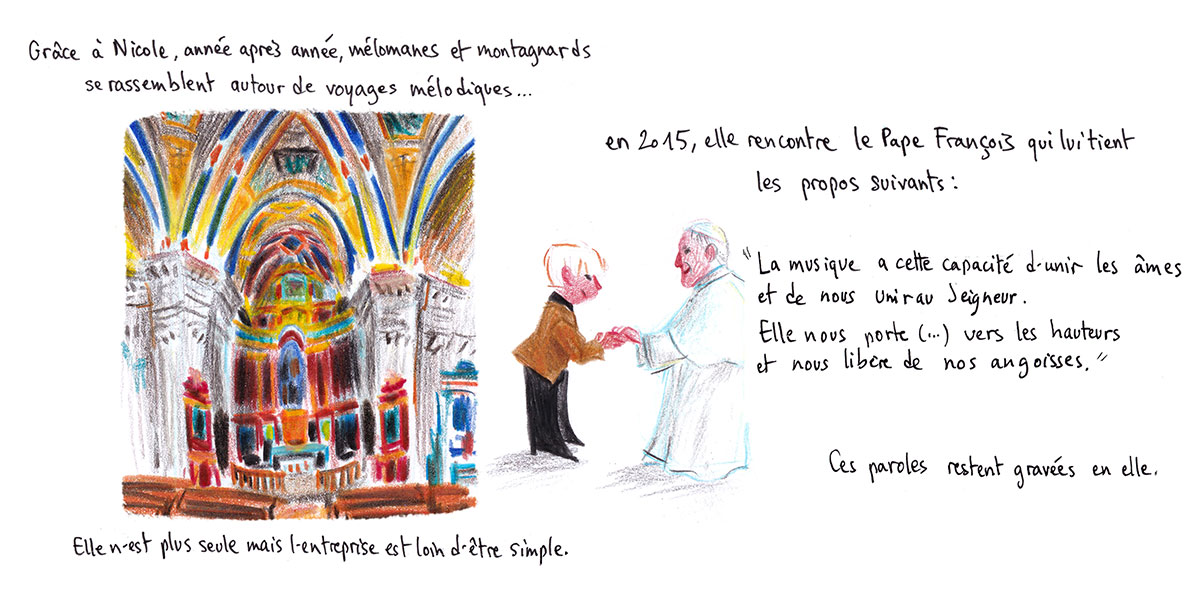 Grâce à Nicole, année après année, mélomanes et montagnards
se rassemblent autour de voyages mélodiques...
en 2015, elle rencontre le Pape François qui lui tient
les propos suivants :
"La musique a cette capacité d'unir les âmes
et de nous unir au Seigneur.
Elle nous porte (...) vers les hauteurs
et nous libère de nos angoisses."
Ces paroles restent gravées en elle.
Elle n'est plus seule mais l'entreprise est loin d'être simple.